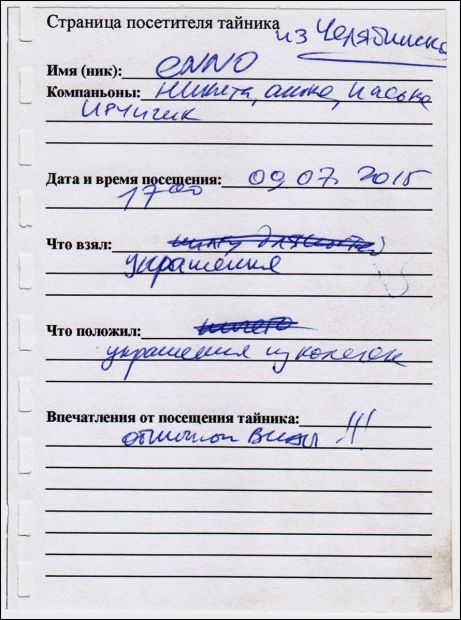 Страница посетителя тайника
из Челябинска
Имя (ник): enno
Компаньоны: Никита, аика, Васька
Ирчигик
Дата и время посещения: 09.07.2015
17 00
Что взял:
украшения
Что положил: ничего
украшения из копеек
Впечатления от посещения тайника:
отличной виды !!!